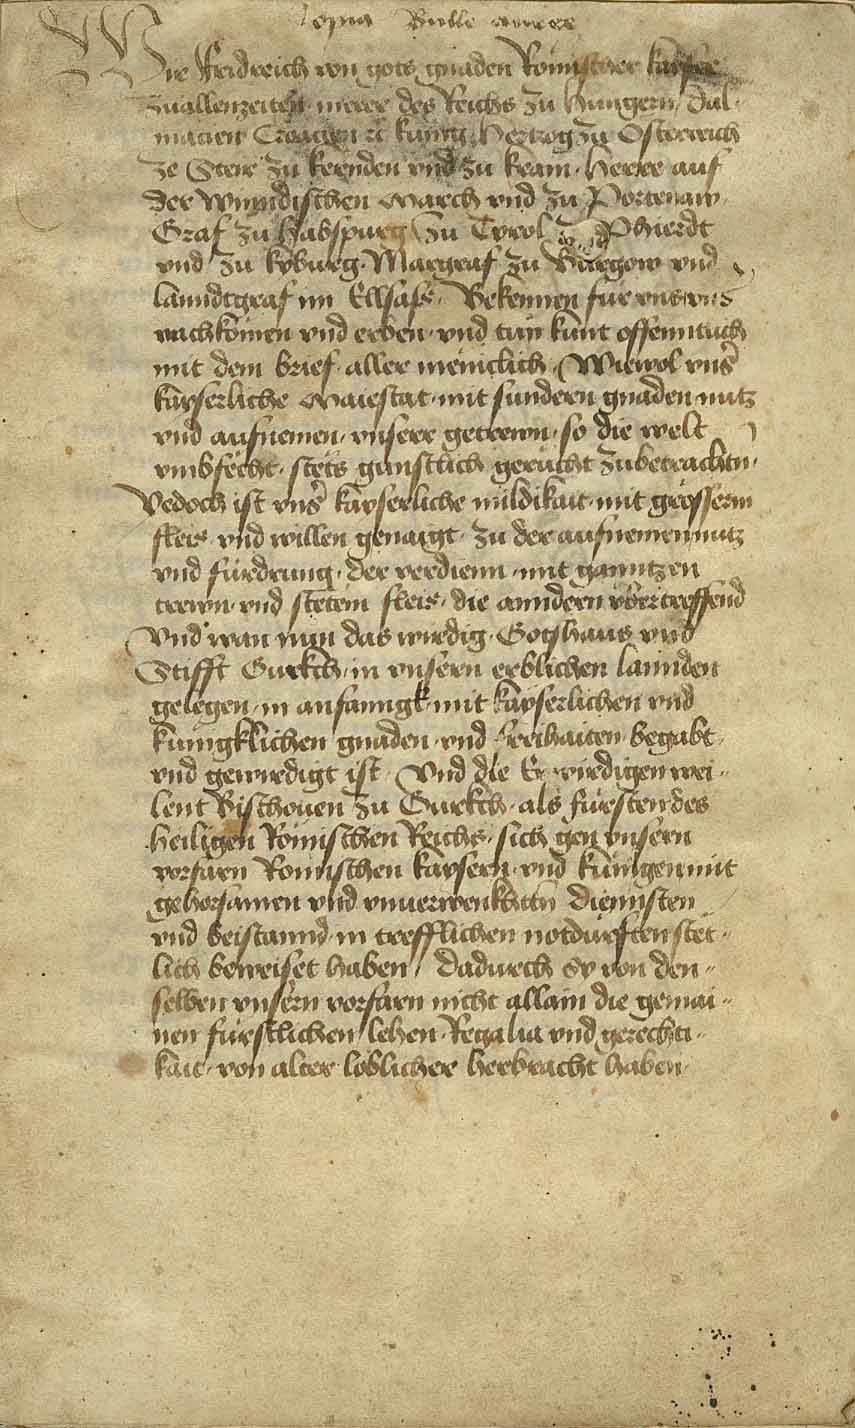 Copia Bulle auree
Wir Fridreich von gots gnaden Römischer kayser
zuallenzeiten merer des Reichs zu Hungern Dal-
macien Croacien ꝛc kunig Hertzog zu Osterreich
ze Steir zu kernden vnd zu krain · Herre auf
der Wynndischen March vnd zu Portenaw
Graf zu Habspurg zu Tyrol zu Phierdt
vnd zu kyburg · Margraf zu Burgow vnd
lanndtgraf im Ellsass · Bekennen fur vns vns̄
nachkomen vnd erben · vnd tun kunt offennlich
mit dem brief · aller meniclich · Wiewol vns̄
kayserliche Maiestat · mit sundern gnaden nutz
vnd aufnemen · vnserr getrewn · so die welt
vmbfecht · stetis gunstlich gerucht zubetrachtn ·
Yedoch ist vns̄ kayserliche mildikait · mit grösserm
fleis · vnd willen genaigt · zu der aufnemen nutz
vnd fürdrung · der verdienn · mit ganntzen
trewn · vnd stetem fleis · die anndern vbertreffend
Vnd wan nun das wirdig · Gotshaus vnd
Stifft Gurkch · in vnsern erblichen lannden
gelegen · in anfanngk · mit kayserlichen vnd
kunigklichen gnaden · vnd freihaiten begabt ·
vnd gewirdigt ist · Vnd die Erwirdigen wei-
lent Bischouen zu Gurkch · als fürsten des
heiligen Römischen Reichs · sich gen vnsern
vorfarn Romischen kaysern · vnd kunigen mit
gehorsamen vnd vnuerwenkhtn diennsten
vnd beistannd · in trefflichen notdurften stet-
lich beweiset haben / dadurch Sy von den-
selben vnsern vorfarn nicht allain die gemai-
nen fürstlichen lehen · Regalia vnd gerechti-
kait · von alter loblicher herbracht haben ·